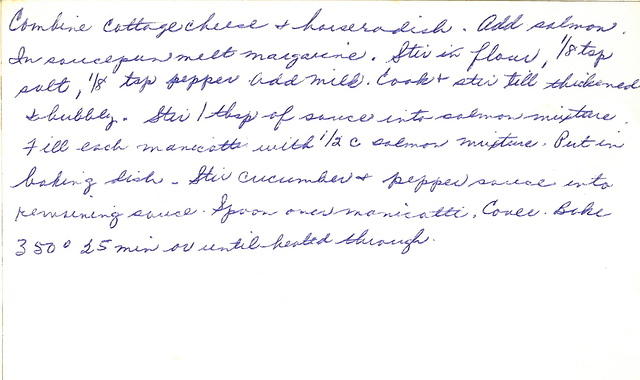 Combine cottage cheese & horseradish. Add salmon.
In saucepan melt margarine. Stir in flour, 1/8 tsp
salt, 1/8 tsp pepper add milk. Cook & stir till thickened
& bubbly. Stir 1 tbsp of sauce into salmon mixture.
Fill each manicotti with 1/2 c salmon mixture. Put in
baking dish - Stir cucumber & pepper sauce into
remaining sauce. Spoon over manicotti. Cover. Bake
350° 25 min or until heated through.